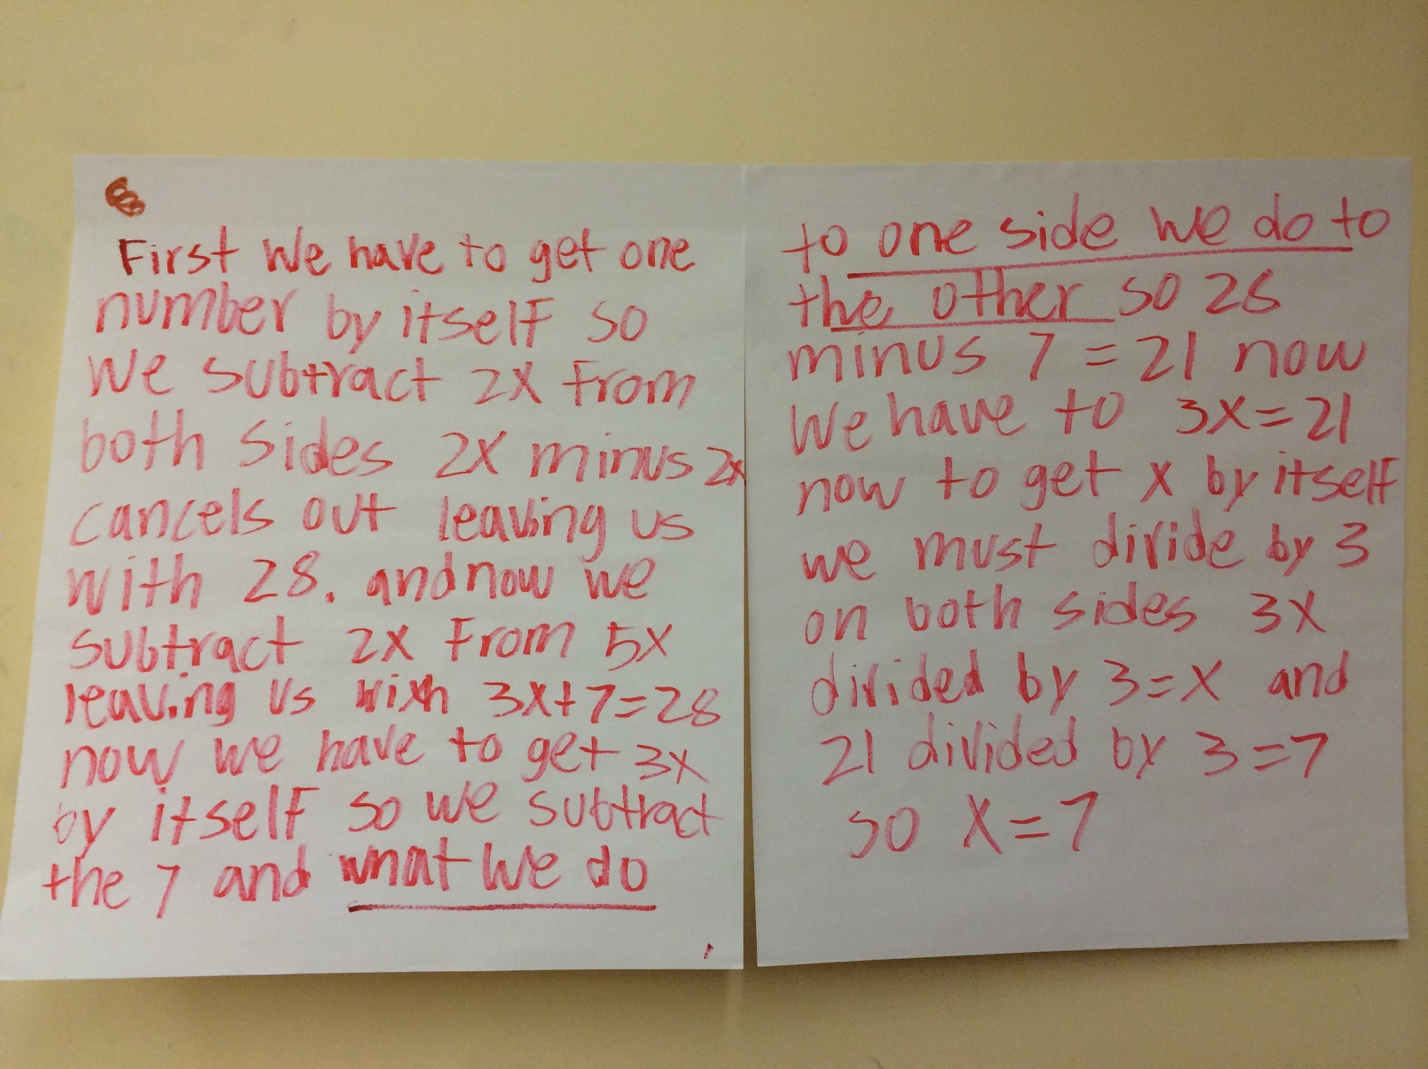 First we have to get one
number by itself so
we subtract 2x from
both sides 2x minus 2x
cancels out leaving us
with 28. and now we
subtract 2x from 5x
leaving us with 3x+7=28
now we have to get 3x
by itself so we subtract
the 7 and what we do
to one side we do to
the other so 28
minus 7 = 21 now
we have to 3x=21
now to get x by itself
we must divide by 3
on both sides 3x
divided by 3=x and
21 divided by 3=7
so x=7